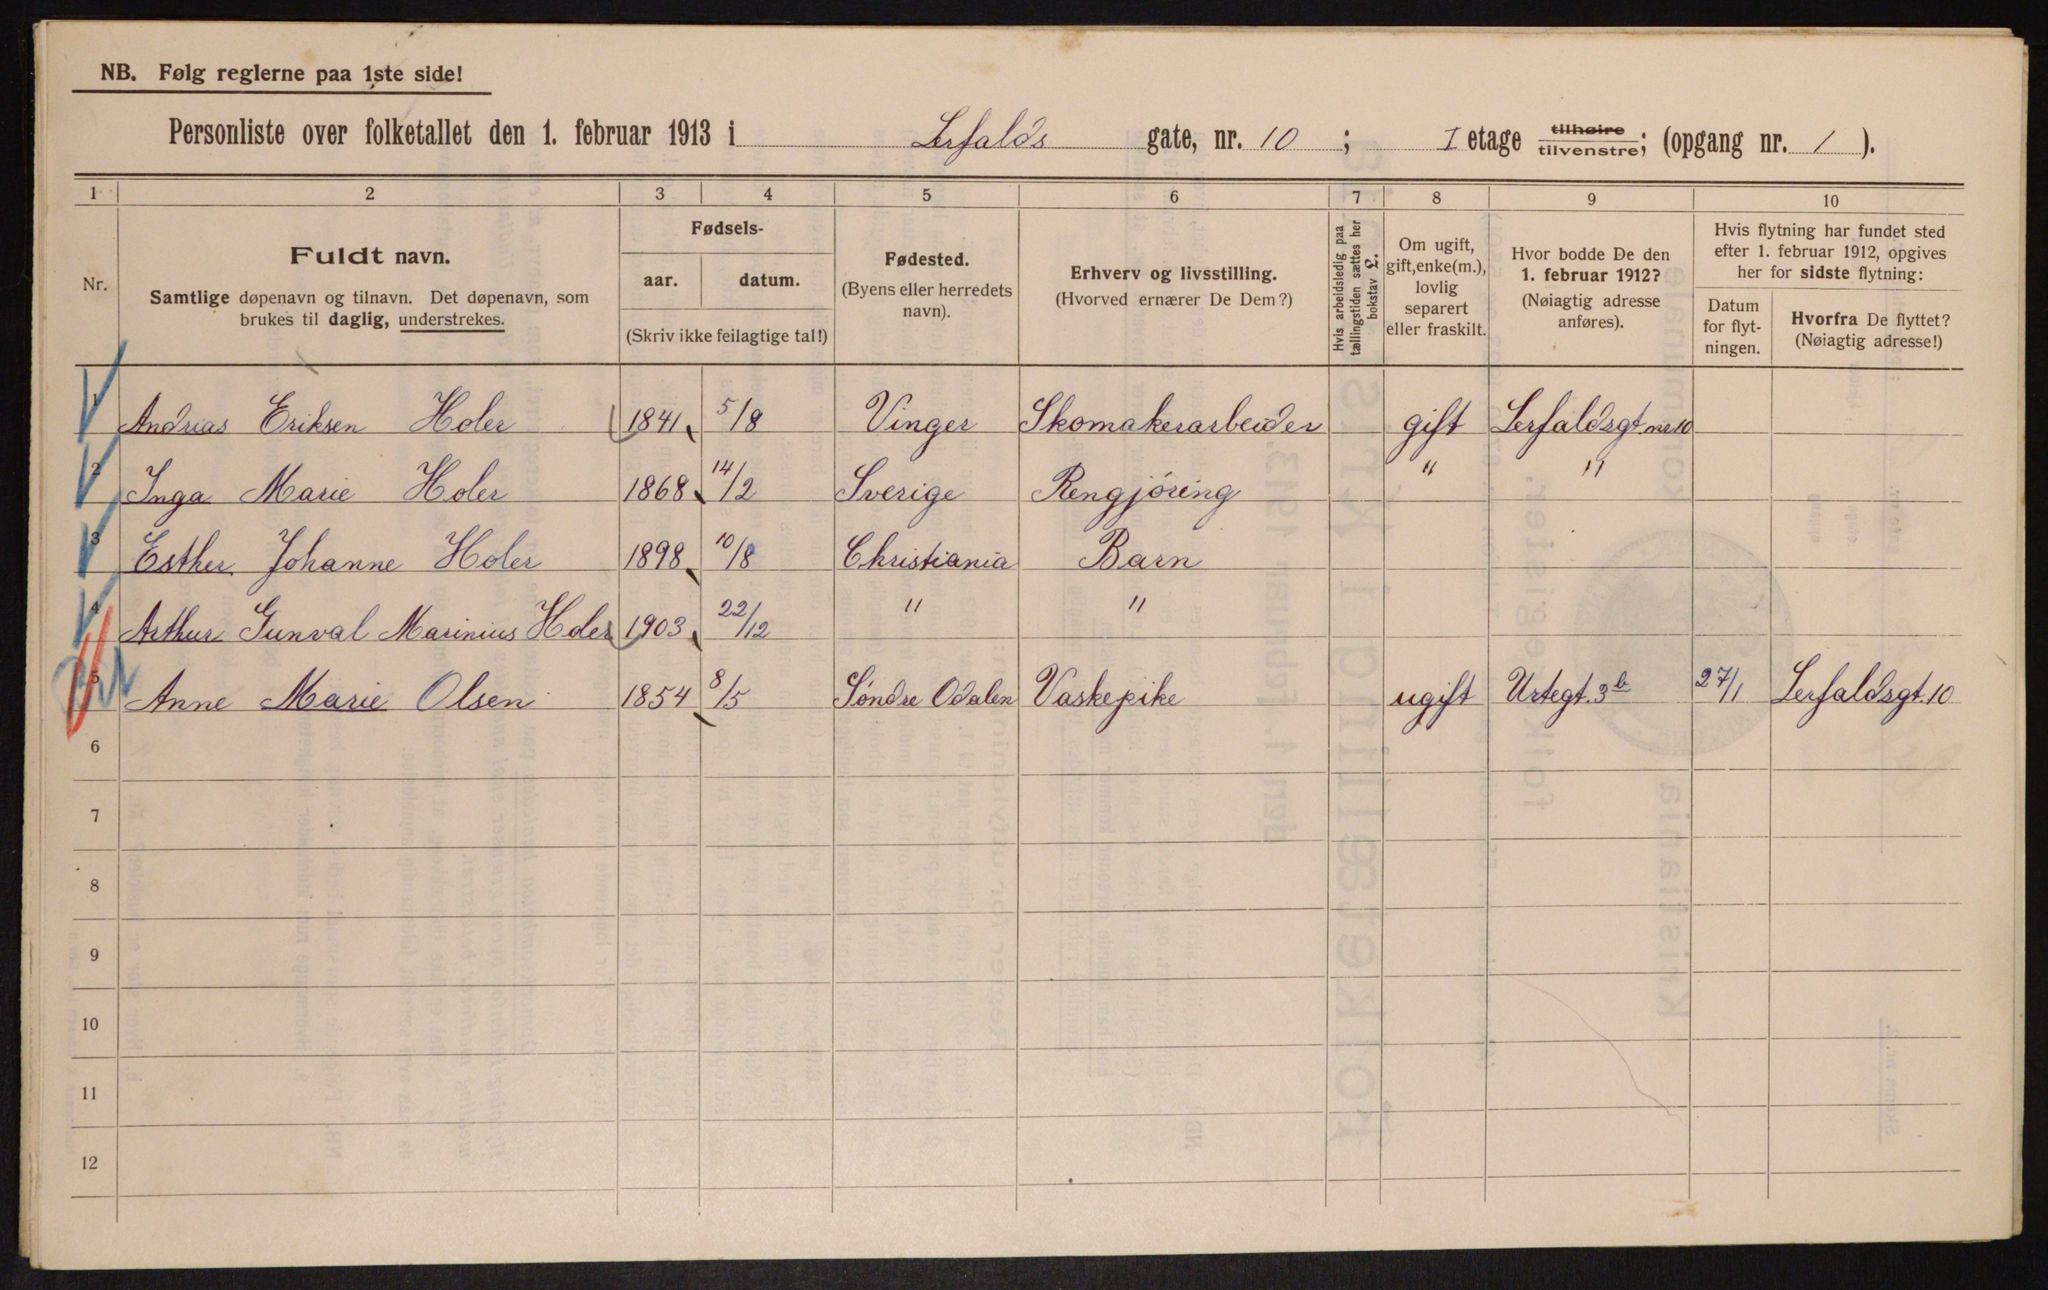 NB. Følg reglerne paa 1ste side!
Personliste over folketallet den 1. februar 1913 i Lerfalds gate, nr. 10; I etage tilhøire tilvenstre; (opgang nr. 1).
1 2 3 4 5 6 7 8 9 10
Nr.
Fuldt navn.
Samtlige døpenavn og tilnavn. Det døpenavn, som
brukes til daglig, understrekes.
Fødsels-
aar. datum.
(Skriv ikke feilagtige tal!)
Fødested.
(Byens eller herredets
navn).
Erhverv og livsstilling.
(Hvorved ernærer De Dem?)
Hvis arbeidsledig paa
tællingstiden sættes her
bokstav L.
Om ugift,
gift, enke(m.),
lovlig
separert
eller fraskilt.
Hvor bodde De den
1. februar 1912?
(Nøiagtig adresse
anføres).
Hvis flytning har fundet sted
efter 1. februar 1912, opgives
her for sidste flytning:
Datum
for flyt-
ningen.
Hvorfra De flyttet?
(Nøiagtig adresse!)
1 Andrias Eriksen Holer 1841 5/8 Vinger Skomakerarbeider gift Lerfaldsgt. nr 10
2 Inga Marie Holer 1868 14/2 Sverige Rengjøring " "
3 Esther Johanne Holer 1898 10/8 Christiania Barn
4 Arthur Gunval Marinius Holer 1903 22/12 " "
5 Anne Marie Olsen 1854 8/5 Søndre Odalen Vaskepike ugift Urtegt. 3b 27/1 Lerfaldsgt. 10
6
7
8
9
10
11
12